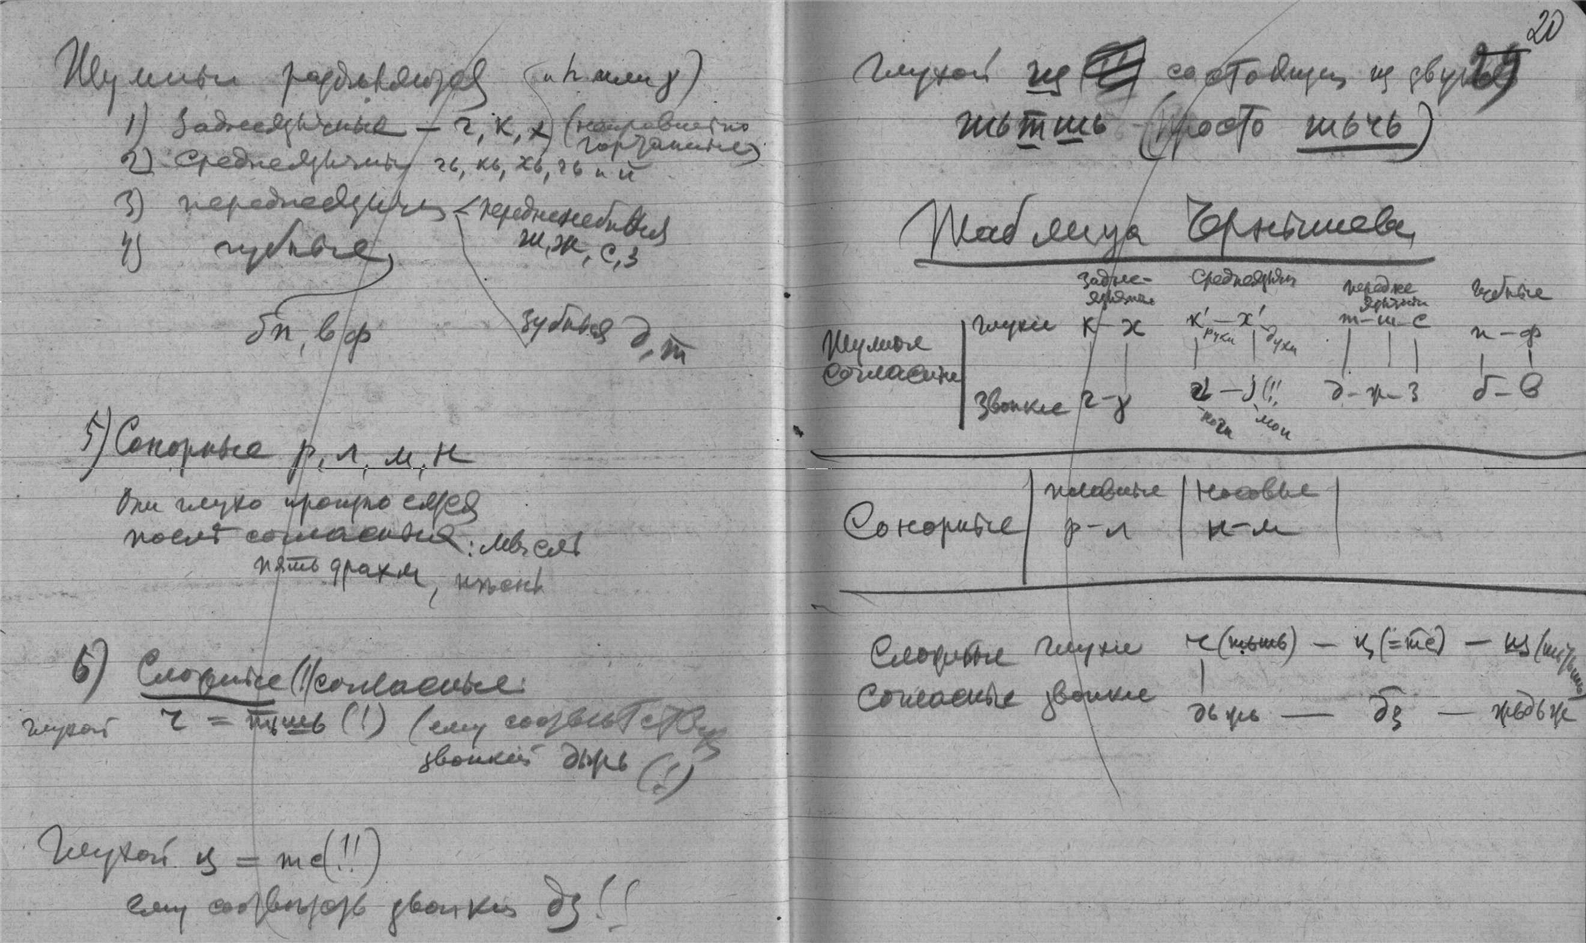 Шумные разделяются (и h или γ)
1) Заднеязычные — г, к, х (неправильно гортанные)
2) Среднеязычные гь, кь, хь, гь и й
3) переднеязычн < передненебныя
ш, ж, с, з
4) губные
бп, вф
зубныя д, т
5) Сонорные р, л, м, н
Они глухо произносятся
послѣ согласныя: мысль
пять драхм, пѣснь
6) Сложные (!) согласные:
глухой ч = тьшь (!) (ему соответствует
звонкий дьжь (!)
Глухой ц = тс (!!)
ему соответств звонкий дз!!
20
глухой щ состоящий из двух
шьтшь (просто шьчь)
Таблица Чернышева
Задне-язычные Среднеязычн передне язычныя губные
Шумные согласные
глухие к – х к' – х' т – ш – с п – ф
руки духи
Звонкие г – γ г' – j (!! д – ж – з б – в
ноги мои
Сонорные плавные носовые
р – л н – м
Сложные глухие ч (тьшь) — ц (= тс) — щ
Согласные звонкие дьжь — дз — жьдьж